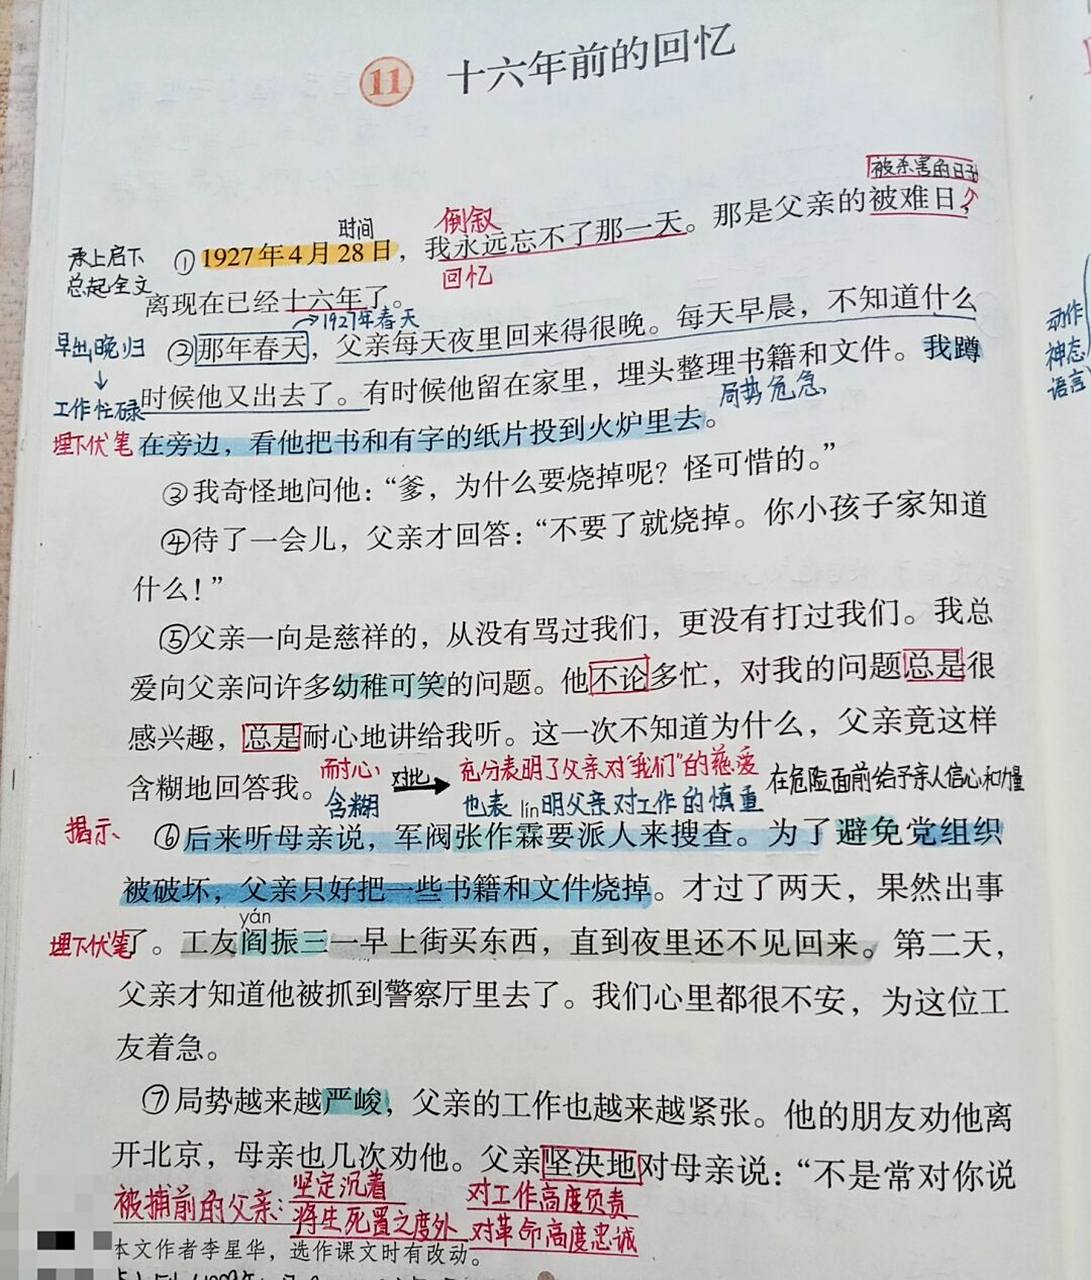 11 十六年前的回忆
被杀害的日子
时间 倒叙
承上启下 ①1927年4月28日，我永远忘不了那一天。那是父亲的被难日，
总起全文 离现在已经十六年了。 回忆
1927年春天
早出晚归 ②那年春天，父亲每天夜里回来得很晚。每天早晨，不知道什么
动作
神态
语言
工作忙碌 时候他又出去了。有时候他留在家里，埋头整理书籍和文件。我蹲
局势危急
埋下伏笔 在旁边，看他把书和有字的纸片投到火炉里去。
③我奇怪地问他：“爹，为什么要烧掉呢？怪可惜的。”
④待了一会儿，父亲才回答：“不要了就烧掉。你小孩子家知道
什么！”
⑤父亲一向是慈祥的，从没有骂过我们，更没有打过我们。我总
爱向父亲问许多幼稚可笑的问题。他不论多忙，对我的问题总是很
感兴趣，总是耐心地讲给我听。这一次不知道为什么，父亲竟这样
含糊地回答我。 耐心 对比 充分表明了父亲对“我们”的慈爱 在危险面前给予亲人信心和力量
含糊 也表明父亲对工作的慎重
lín
揭示 ⑥后来听母亲说，军阀张作霖要派人来搜查。为了避免党组织
被破坏，父亲只好把一些书籍和文件烧掉。才过了两天，果然出事
yán
埋下伏笔 了。工友阎振三一早上街买东西，直到夜里还不见回来。第二天，
父亲才知道他被抓到警察厅里去了。我们心里都很不安，为这位工
友着急。
⑦局势越来越严峻，父亲的工作也越来越紧张。他的朋友劝他离
开北京，母亲也几次劝他。父亲坚决地对母亲说：“不是常对你说
被捕前的父亲： 坚定沉着 对工作高度负责
将生死置之度外 对革命高度忠诚
本文作者李星华，选作课文时有改动。